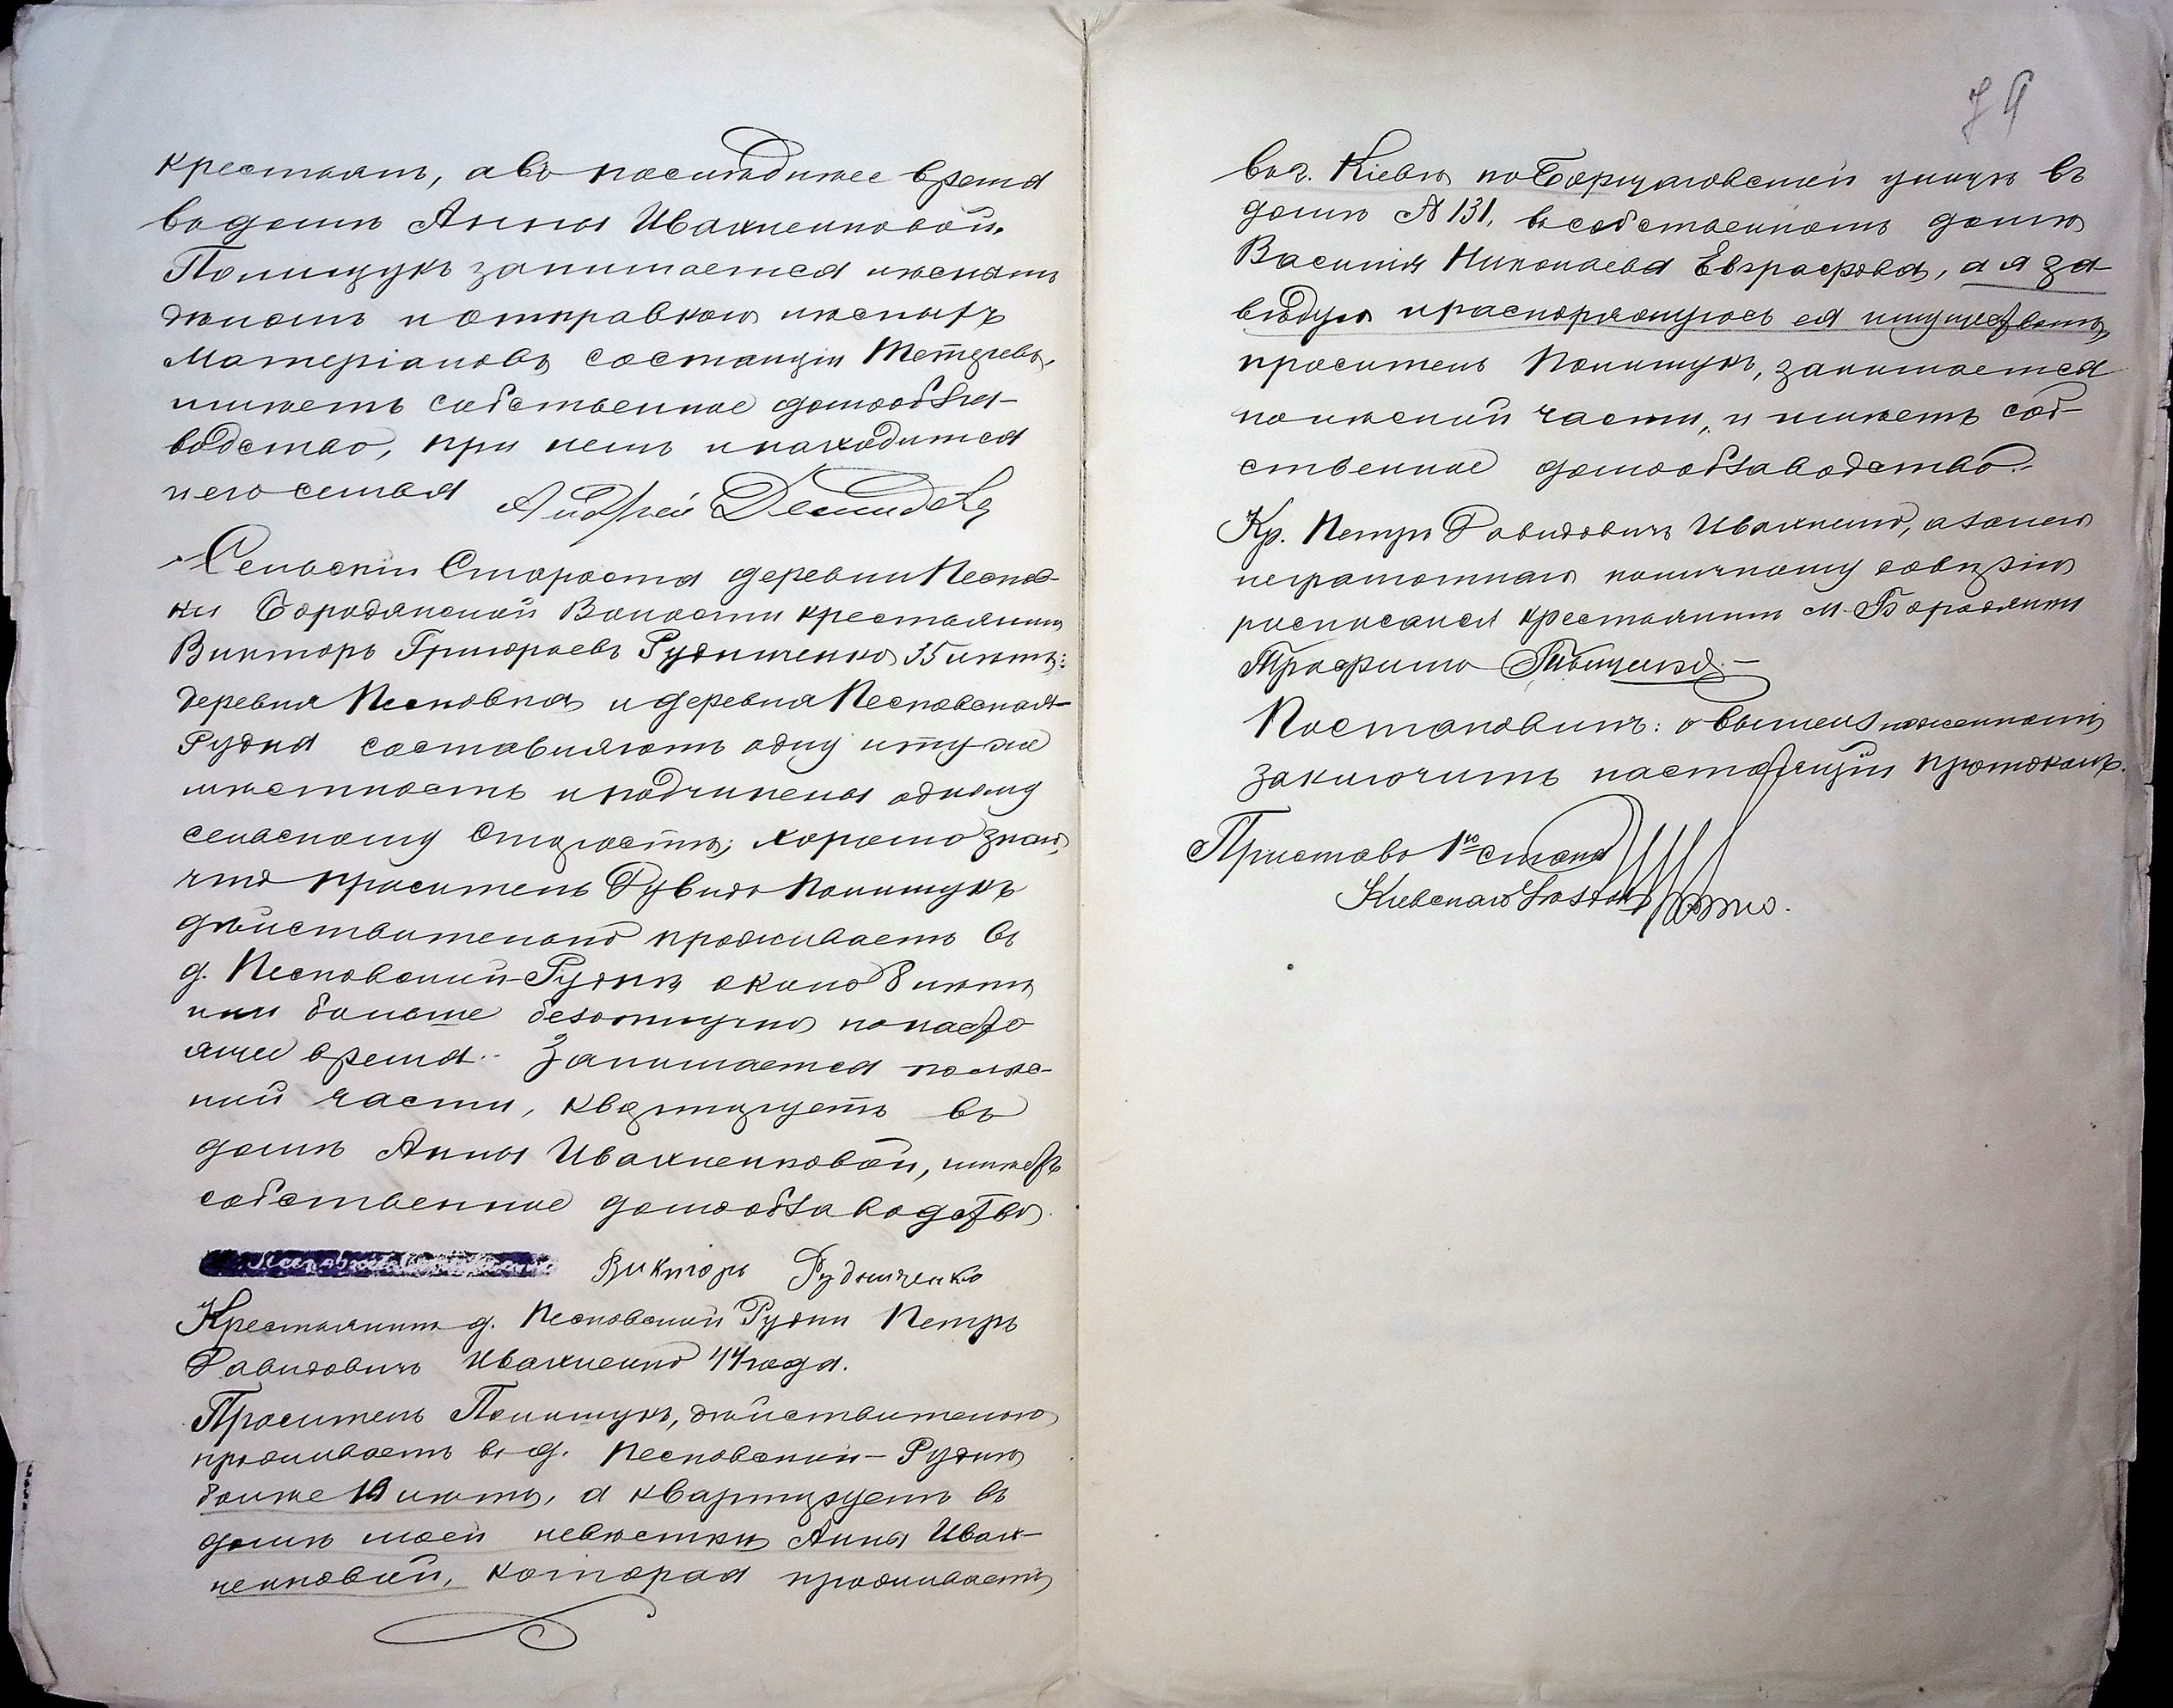 крестьянъ, а въ последнее время
въ домѣ Анны Ивахненковой.
Полищукъ занимается лѣснымъ
дѣломъ и отправкою лѣсныхъ
матеріаловъ со станціи Тетеревъ,
имѣетъ собственное домообза-
водство, при немъ и находится
и его семья Андрей Демидовъ
Сельскій Староста деревни Песков-
ки Бородянской Волости крестьянинъ
Викторъ Григорьевъ Рудниченко 35 лѣтъ:
деревня Песковка и деревня Песковская-
Рудня составляютъ одну и ту же
мѣстность и подчинены одному
сельскому Старостѣ; хорошо знаю,
что проситель Рувинъ Полищукъ
дѣйствительно проживаетъ въ
д. Песковской-Руднѣ около 8 лѣтъ
или больше безотлучно по насто
ящее время. Занимается по лѣс-
ной части, квартируетъ въ
домѣ Анны Ивахненковой, имѣетъ
собственное домообзаводство.
Викторъ Рудниченко
Крестьянинъ д. Песковской Рудни Петръ
Давидовичъ Ивахненко 44 года.
Проситель Полищукъ, дѣйствительно
проживаетъ въ д. Песковской-Руднѣ
болѣе 10 лѣтъ, а квартируетъ въ
домѣ моей невѣстки Анны Ивах-
ненковой, которая проживаетъ
79
въ г. Кіевѣ по Борщаговской улицѣ въ
домѣ № 131, въ собственномъ домѣ
Василія Николаева Евграфова, а я за-
вѣдую и распоряжаюсь ея имуществомъ,
проситель Полищукъ, занимается
по лѣсной части, и имѣетъ соб-
ственное домообзаводство.
Кр. Петръ Давидовичъ Ивахненко, а за него
неграмотнаго по личному
росписался крестьянинъ м. Бородянки
Трофимъ
Постановилъ: о вышеизложенномъ
заключить настоящій протоколъ.
Приставъ 1го стана
Кіевскаго Уѣзда